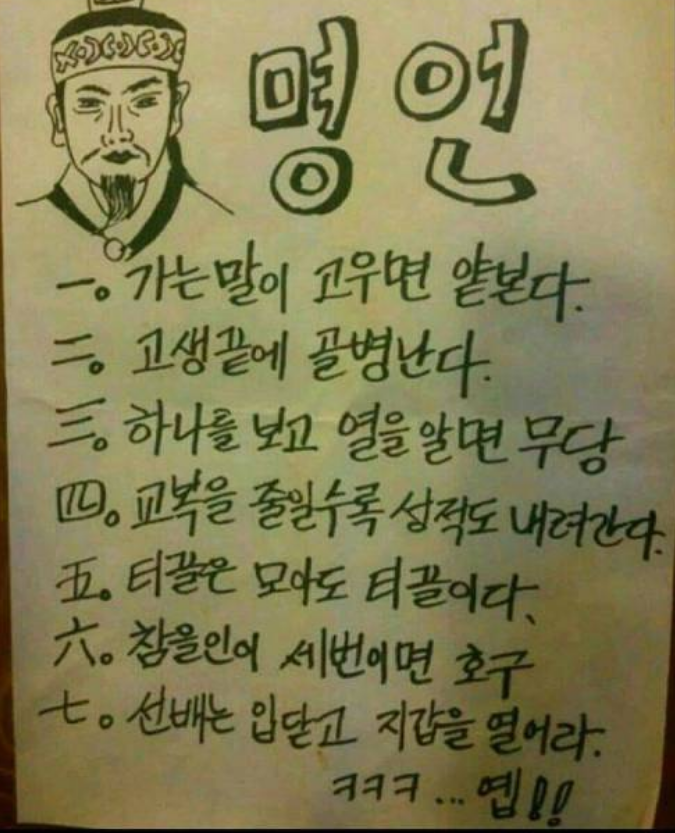 명언
一。 가는 말이 고우면 얕본다.
二。 고생끝에 골병난다.
三。 하나를 보고 열을 알면 무당
四。 교복을 줄일수록 성적도 내려간다.
五。 티끌은 모아도 티끌이다.
六。 참을인이 세번이면 호구
七。 선배는 입닫고 지갑을 열어라.
ㅋㅋㅋ... 옙!!